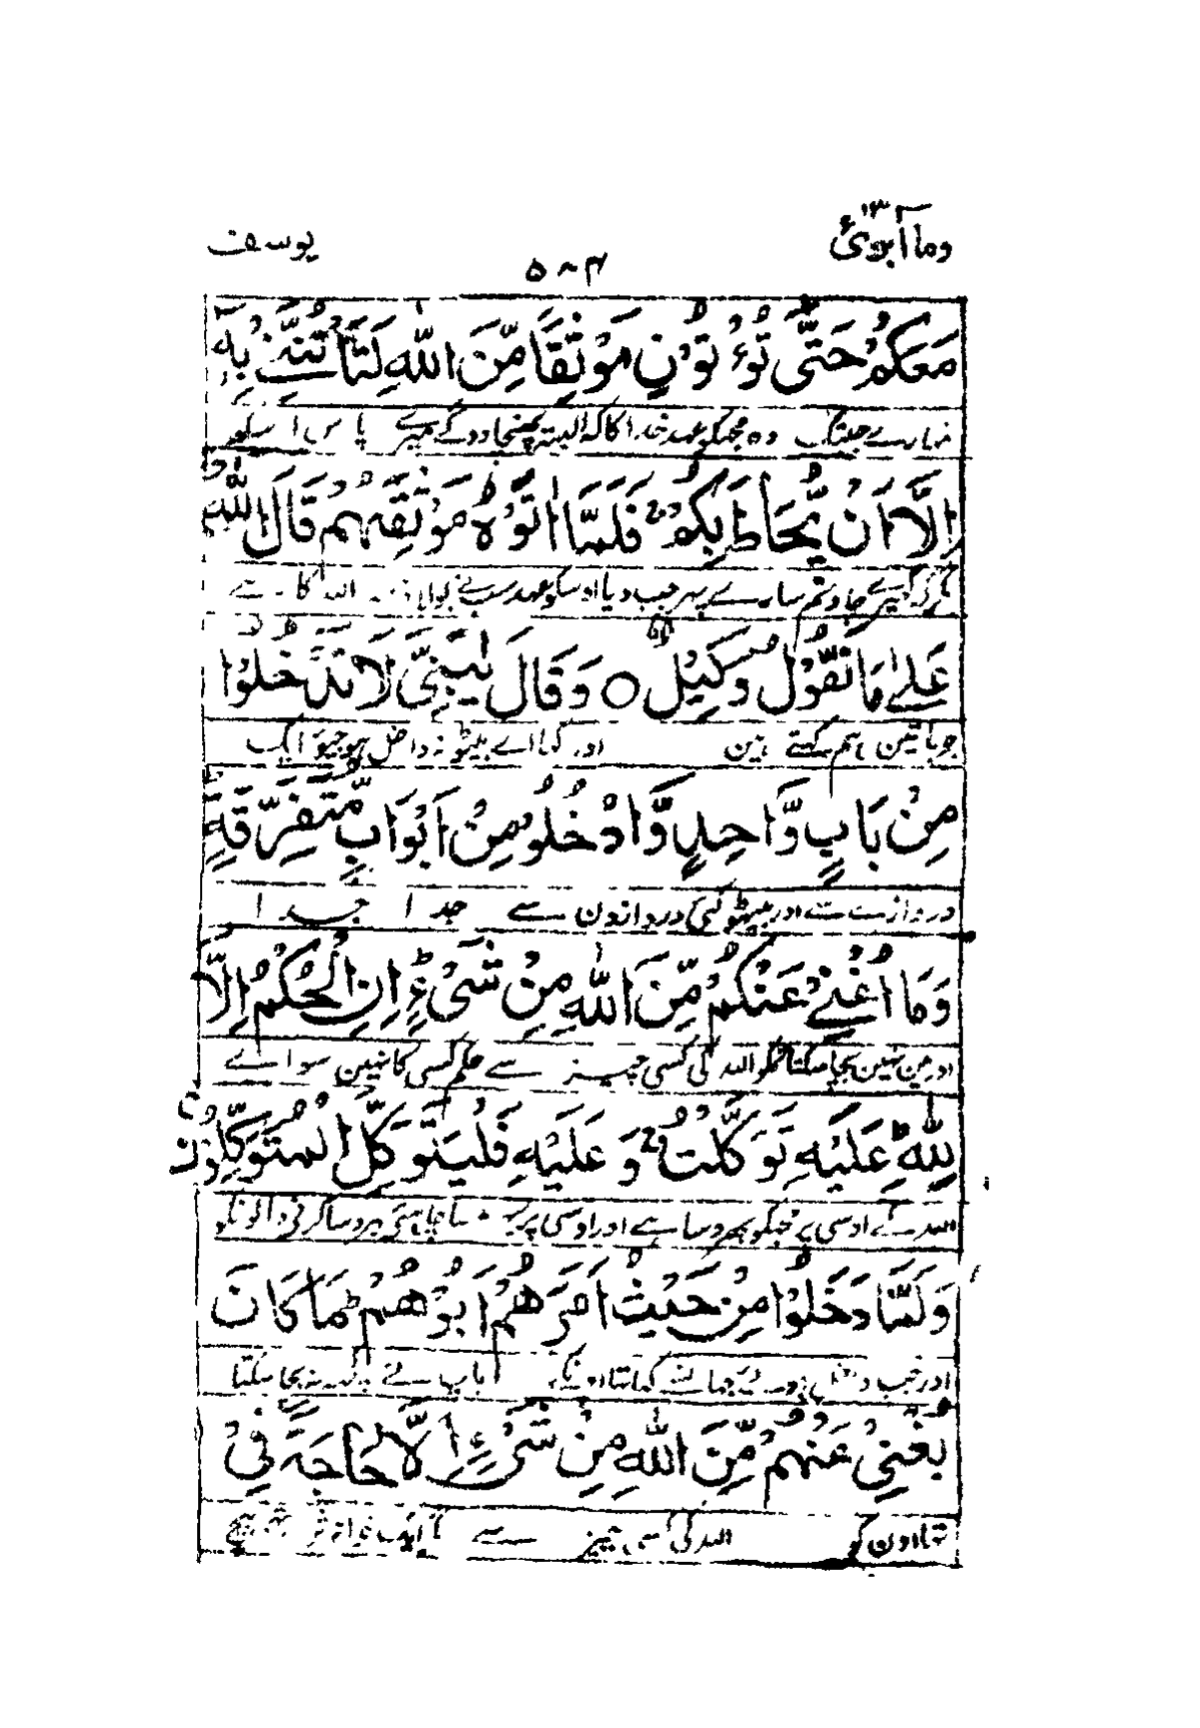 وما ابرئ ۱۳
یوسف
۵۰۴
مَعَكُمْ حَتّٰى تُؤْتُوْنِ مَوْثِقًا مِّنَ اللّٰهِ لَتَاْتُنَّنِيْ بِهٖٓ
تمہارے جبتک وہ مجھکو عہد خدا کا کہ البتہ پہنچا دوگے میرے پاس اسکو
اِلَّآ اَنْ يُّحَاطَ بِكُمْ فَلَمَّآ اٰتَوْهُ مَوْثِقَهُمْ قَالَ اللّٰهُ
مگر کہ گھیرے جاؤ تم سارے پہر جب دیا اوسکو عہد سب نے بولا اللہ کا ہے
عَلٰى مَا نَقُوْلُ وَكِيْلٌ ۝ وَقَالَ يٰبَنِيَّ لَا تَدْخُلُوْا
جو باتین ہم کہتے ہین اور کہا اے بیٹو نہ داخل ہوجیو ایک
مِنْۢ بَابٍ وَّاحِدٍ وَّادْخُلُوْا مِنْ اَبْوَابٍ مُّتَفَرِّقَةٍ
دروازے سے اور بیٹھو کئی دروازون سے جدا جدا
وَمَآ اُغْنِيْ عَنْكُمْ مِّنَ اللّٰهِ مِنْ شَيْءٍ اِنِ الْحُكْمُ اِلَّا
اور مین نہین بچا سکتا تمکو اللہ کی کسی چیز سے حکم کسی کا نہین سواے
لِلّٰهِ عَلَيْهِ تَوَكَّلْتُ وَعَلَيْهِ فَلْيَتَوَكَّلِ الْمُتَوَكِّلُوْنَ
اللہ کے اوسی پر مجھکو بھروسا ہے اور اوسی پر چاہئے بہروسا کرنی والونکو
وَلَمَّا دَخَلُوْا مِنْ حَيْثُ اَمَرَهُمْ اَبُوْهُمْ مَا كَانَ
اور جب داخل ہوے جہانسے کہا تھا اونکے باپ نے نہ بچا سکتا
يُغْنِيْ عَنْهُمْ مِّنَ اللّٰهِ مِنْ شَيْءٍ اِلَّا حَاجَةً فِيْ
تھا اون کو اللہ کی کسی چیز سے